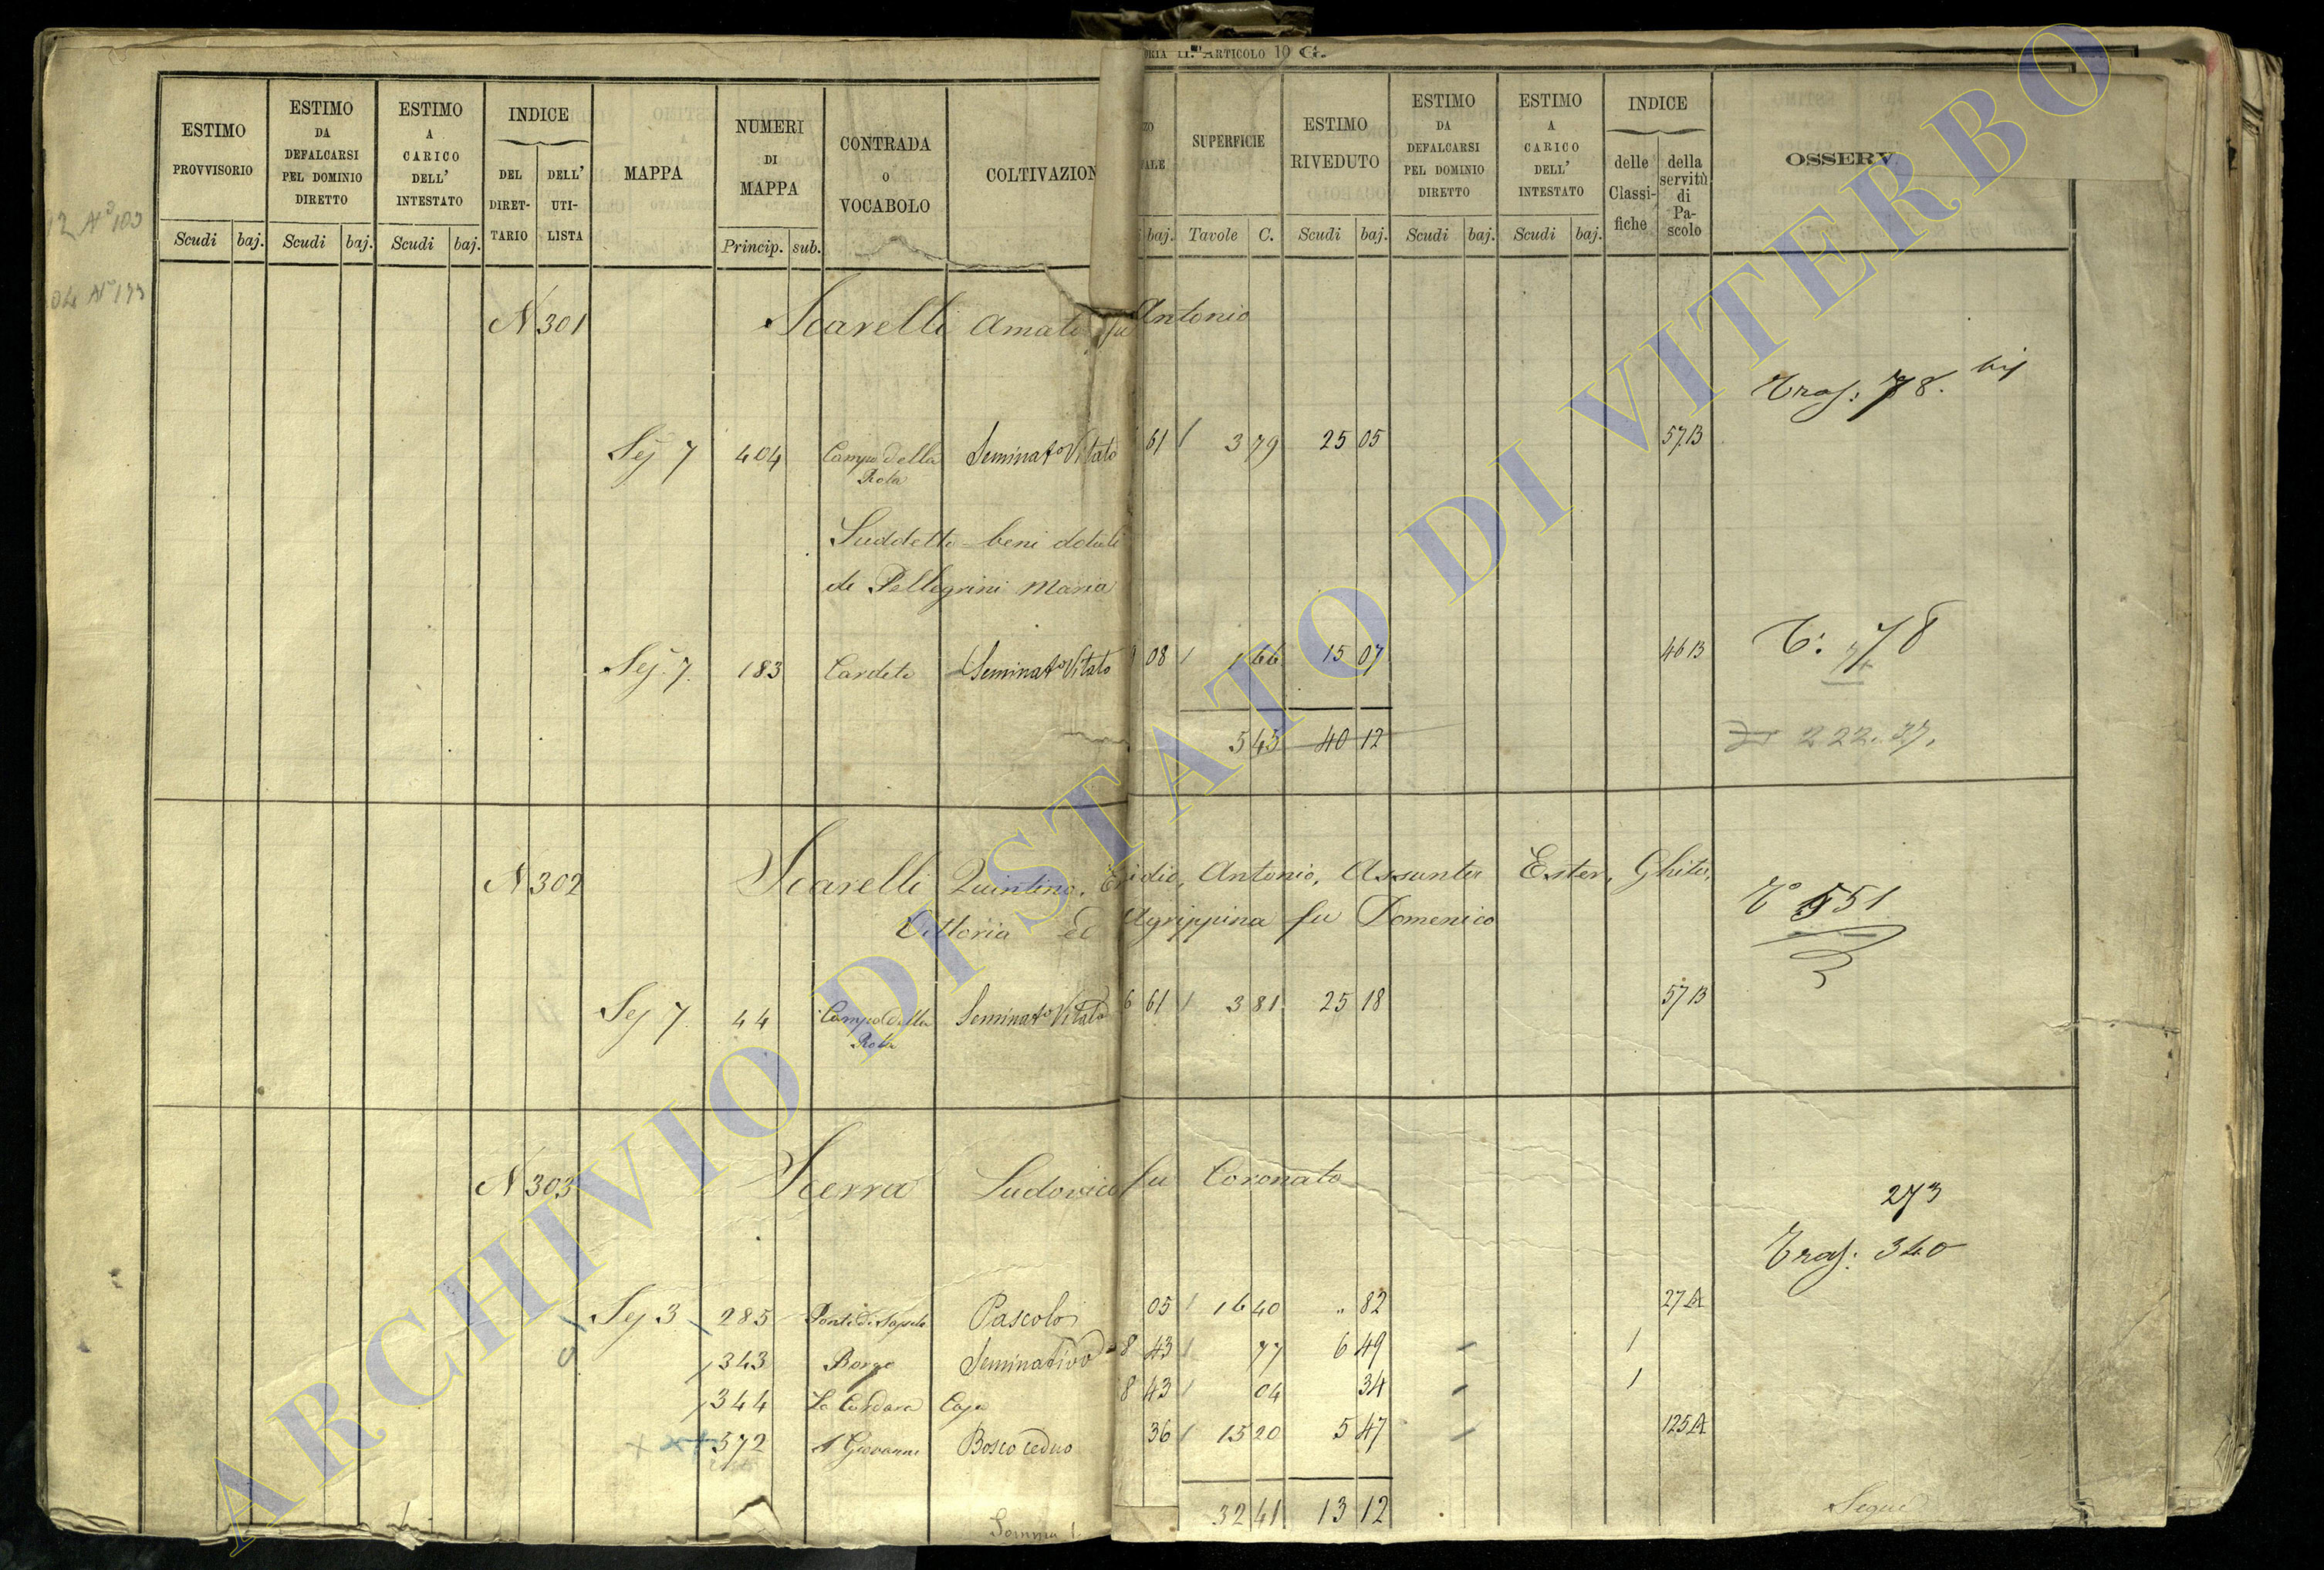 ORIA II.ª ARTICOLO 10 G.
ESTIMO PROVVISORIO
Scudi baj.
ESTIMO DA DEFALCARSI PEL DOMINIO DIRETTO
Scudi baj.
ESTIMO A CARICO DELL' INTESTATO
Scudi baj.
INDICE
DEL DIRET-TARIO
DELL' UTI-LISTA
MAPPA
NUMERI DI MAPPA
Princip. sub.
CONTRADA O VOCABOLO
COLTIVAZION
ALE
baj.
SUPERFICIE
Tavole C.
ESTIMO RIVEDUTO
Scudi baj.
ESTIMO DA DEFALCARSI PEL DOMINIO DIRETTO
Scudi baj.
ESTIMO A CARICO DELL' INTESTATO
Scudi baj.
INDICE
delle Classi-fiche
della servitù di Pa-scolo
OSSERV
N 301 Scarelli Amato fu Antonio
Tras: 78. bis
Sez 7 404 Campo della Rota Seminat° Vitato 61 3 79 25 05 57 B
Suddetto beni dotali
di Pellegrini Maria
Sez. 7. 183 Cardeto Seminat° Vitato 08 1 66 15 07 46 B T: 78
5 45 40 12 222. 37.
N 302 Scarelli Quintino, Egidio, Antonio, Assunta Ester, Ghita,
Vittoria ed Agrippina fu Domenico
T° 551
Sez 7. 44 Campo della Rota Seminat° Vitato 6 61 3 81 25 18 57 B
N 303 Scerra Ludovico fu Coronato
273
Tras: 340
Sez 3 285 Pascolo 05 16 40 " 82 27 A
343 Borgo Seminativo 8 43 77 6 49 1
344 La Cordara Casa 8 43 04 34 1
572 S Giovanni Bosco ceduo 36 15 20 5 47 125 A
Somma 32 41 13 12
Segue
ARCHIVIO DI STATO DI VITERBO